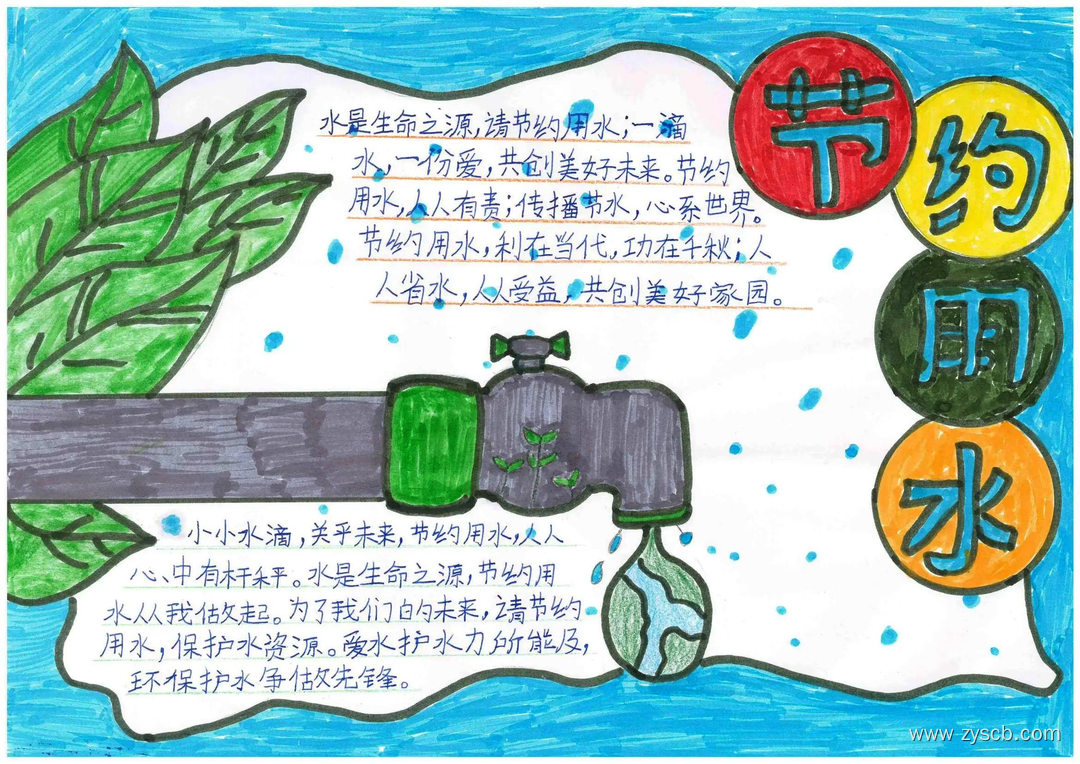 节
约
用
水
水是生命之源,请节约用水;一滴
水,一份爱,共创美好未来。节约
用水,人人有责;传播节水,心系世界。
节约用水,利在当代,功在千秋;人
人省水,人人受益,共创美好家园。
小小水滴,关乎未来,节约用水,人人
心中有杆秤。水是生命之源,节约用
水从我做起。为了我们的未来,请节约
用水,保护水资源。爱水护水力所能及,
环保护水争做先锋。
www.zyscb.com